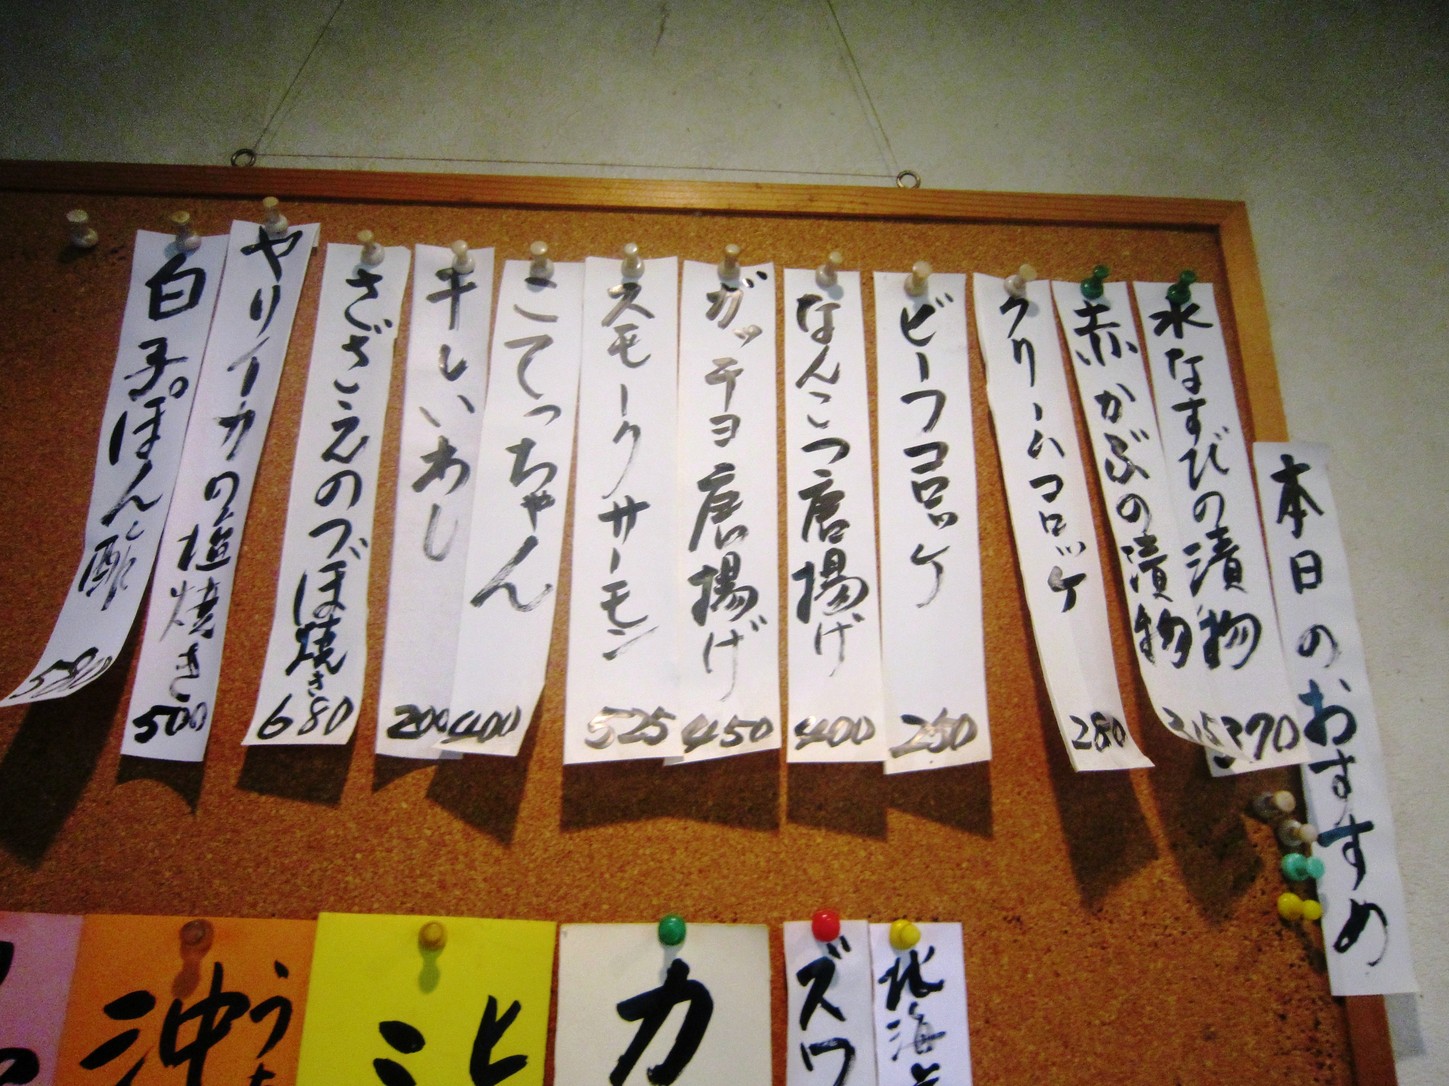 本日のおすすめ
水なすびの漬物
370
赤かぶの漬物
315
クリームコロッケ
280
ビーフコロッケ
250
なんこつ唐揚げ
400
ガッチョ唐揚げ
450
スモークサーモン
525
こてっちゃん
400
干しいわし
200
さざえのつぼ焼き
680
ヤリイカの塩焼き
500
白子ぽん酢
580
北海
ズワ
カ